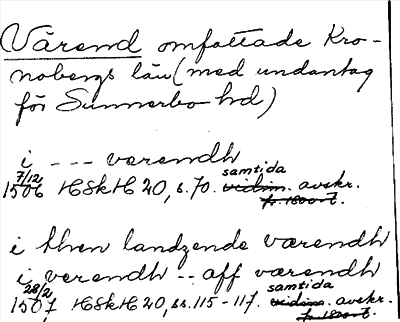 Värend omfattade Kro-
nobergs län (med undantag
för Sunnerbo hd)
i --- værendh
7/12
1506 HSkH 20, s. 70. samtida vidim. avskr.
fr. 1800-t.
i then landzende værendh
i verendh -- aff værendh
28/2
1507 HSkH 20, ss. 115-117. samtida vidim. avskr.
fr. 1800-t.